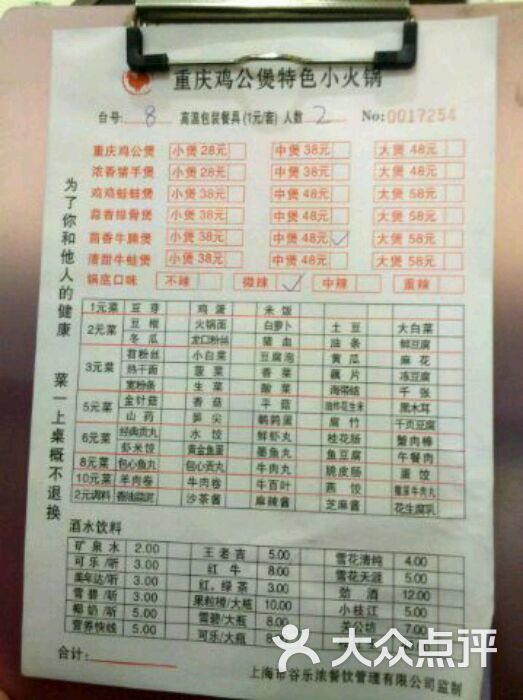 重庆鸡公煲特色小火锅
台号: 8 高温包装餐具(1元/客) 人数 2 No:0017254
重庆鸡公煲 小煲28元 中煲38元 大煲48元
浓香猪手煲 小煲28元 中煲38元 大煲48元
鸡鸡蛙蛙煲 小煲38元 中煲48元 大煲58元
蒜香排骨煲 小煲38元 中煲48元 大煲58元
茴香牛腩煲 小煲38元 中煲48元 ✓ 大煲58元
清甜牛蛙煲 小煲38元 中煲48元 大煲58元
锅底口味 不辣 微辣 ✓ 中辣 重辣
1元菜 豆芽 鸡蛋 米饭
2元菜 豆棍 火锅面 白萝卜 土豆 大白菜
冬瓜 龙口粉丝 猪血 油条 鲜豆腐
3元菜 苕粉丝 小白菜 豆腐泡 黄瓜 麻花
热干面 菠菜 香菜 藕片 冻豆腐
宽粉条 生菜 酸菜 海带结 千张
5元菜 金针菇 香菇 平菇 油炸花生米 黑木耳
山药 笋尖 鹌鹑蛋 腐竹 千页豆腐
6元菜 经典贡丸 水饺 鲜虾丸 桂花肠 蟹肉棒
虾米饺 黄金鱼蛋 墨鱼丸 鱼豆腐 午餐肉
8元菜 包心鱼丸 包心贡丸 牛肉丸 脆皮肠 蛋饺
10元菜 羊肉卷 牛肉卷 牛百叶 燕饺 撒尿牛肉丸
2元调料 香油蒜泥 沙茶酱 麻辣酱 芝麻酱 花生腐乳
酒水饮料
矿泉水 2.00 王老吉 5.00 雪花清纯 4.00
可乐/听 3.00 红牛 8.00 雪花天涯 5.00
美年达/听 3.00 红、绿茶 3.00 劲酒 12.00
雪碧/听 3.00 果粒橙/大瓶 10.00 小枝江 5.00
椰奶/听 5.00 雪碧/大瓶 8.00 关公坊 7.00
营养快线 5.00 可乐/大瓶 8
合计:
上海市谷乐浓餐饮管理有限公司监制
为了你和他人的健康 菜一上桌概不退换
大众点评